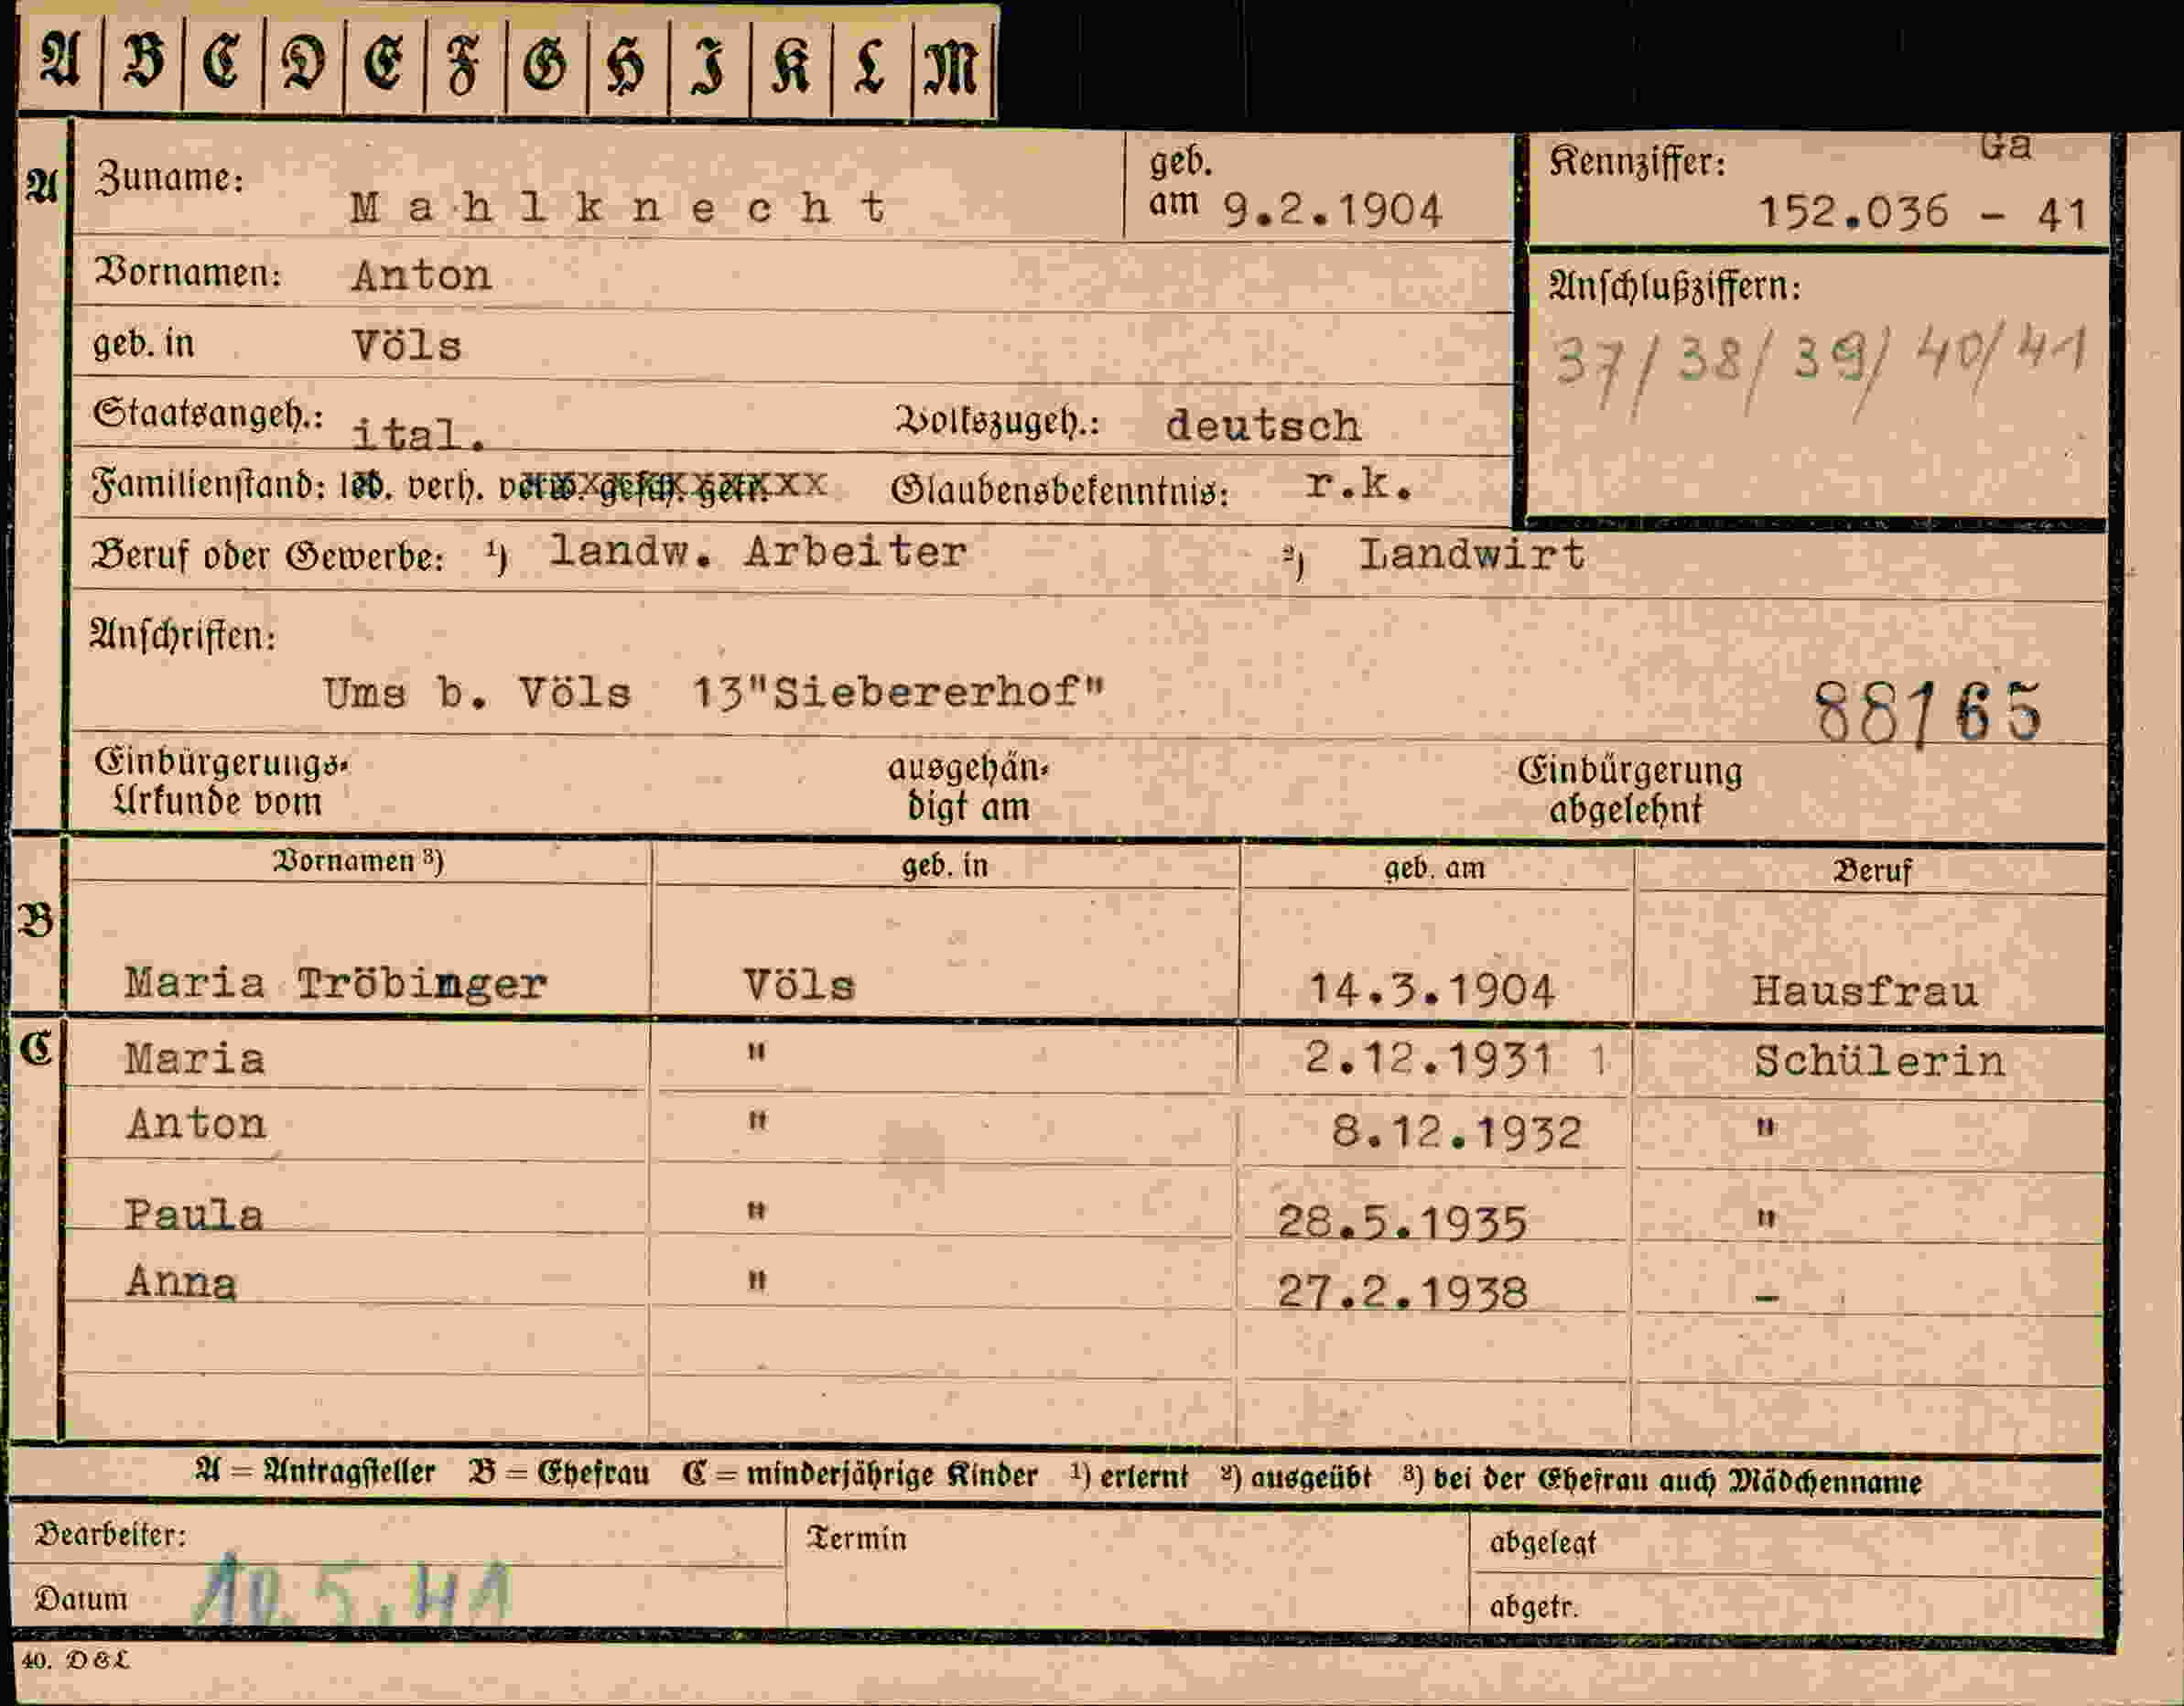 A B C D E F G H I K L M
Ga
A Zuname: Mahlknecht geb. am 9.2.1904 Kennziffer: 152.036 - 41
Vornamen: Anton
Anschlußziffern:
geb. in Völs
37/38/39/40/41
Staatsangeh.: ital. Volkszugeh.: deutsch
Familienstand: led. verh. verw. gesch. getr. Glaubensbekenntnis: r.k.
Beruf oder Gewerbe: ¹) landw. Arbeiter ²) Landwirt
Anschriften:
Ums b. Völs 13"Siebererhof" 88165
Einbürgerungs- ausgehän- Einbürgerung
Urkunde vom digt am abgelehnt
Vornamen ³) geb. in geb. am Beruf
B
Maria Tröbinger Völs 14.3.1904 Hausfrau
C Maria " 2.12.1931 1 Schülerin
Anton " 8.12.1932 "
Paula " 28.5.1935 "
Anna " 27.2.1938 -
A = Antragsteller B = Ehefrau C = minderjährige Kinder ¹) erlernt ²) ausgeübt ³) bei der Ehefrau auch Mädchenname
Bearbeiter: Termin abgelegt
Datum 10.5.41 abgetr.
40. D&L